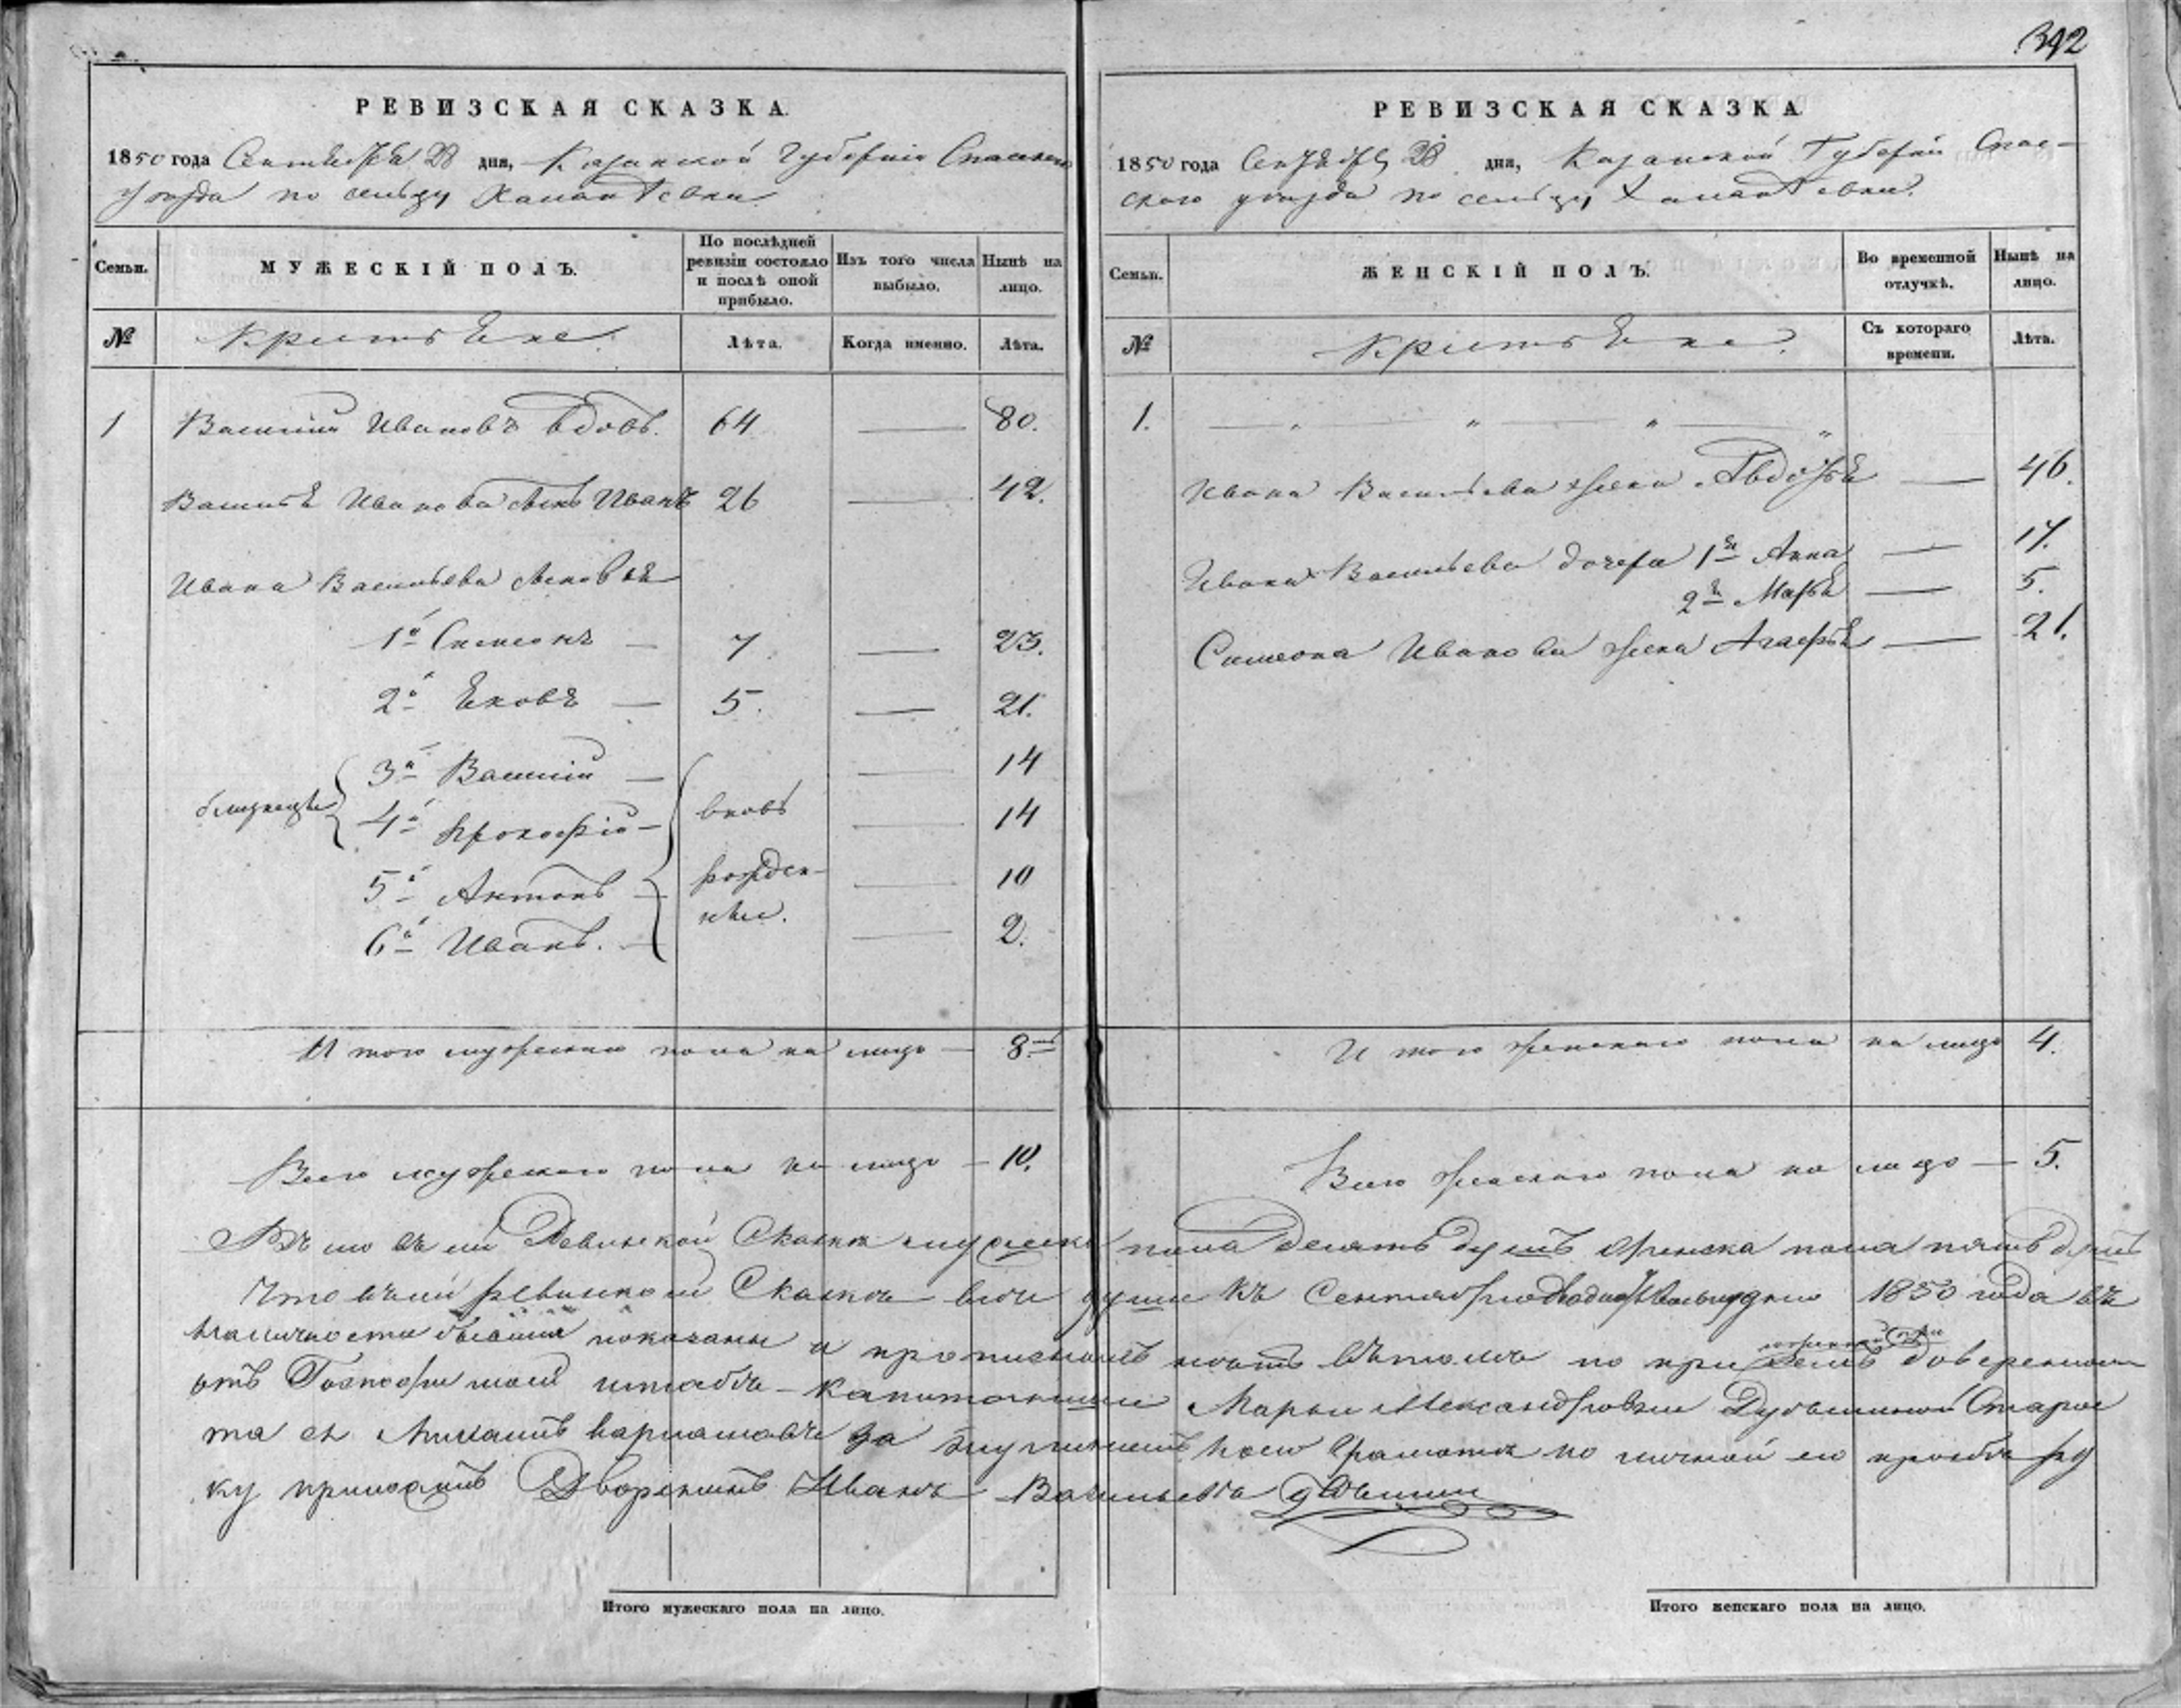 392
РЕВИЗСКАЯ СКАЗКА.
1850 года Сентября 28 дня, Казанской Губерніи Спасскаго
уѣзда по сельцу
Семьи.
МУЖЕСКІЙ ПОЛЪ.
По послѣдней ревизіи состояло и послѣ оной прибыло.
Изъ того числа выбыло.
Нынѣ на лицо.
№
Крестьяне.
Лѣта.
Когда именно.
Лѣта.
1 Василій Ивановъ вдовъ. 64 — 80.
Василья Иванова сынъ Иванъ 26 — 42.
Ивана Васильева сыновья
1й Симеонъ — 7. — 23.
2й Яковъ — 5. — 21.
3й Василій — — 14
близнецы 4й Прокофій — вновь — 14
5й Антонъ — рожден- — 10
6й Иванъ. — ные. — 2.
Итого мужеска пола на лицо — 8
Всего мужеска пола на лицо — 10.
РЕВИЗСКАЯ СКАЗКА
1850 года Сентября 28 дня, Казанской Губерніи Спас-
скаго уѣзда по сельцу
Семьи.
ЖЕНСКІЙ ПОЛЪ.
Во временной отлучкѣ.
Нынѣ на лицо.
№
Крестьяне.
Съ котораго времени.
Лѣта.
1. — „ — „ — „ — „
Ивана Васильева жена Авдотья — 46.
Ивана Васильева дочери 1я Анна — 17.
2я Марья — 5.
Симеона Иванова жена Агафья — 21.
Итого женскаго пола на лицо 4.
Всего женскаго пола на лицо — 5.
Ревизской Сказки мужска пола десять душъ женска пола пять душъ
Что въ сей ревизской Сказке все души къ Сентября 1850 года въ
наличности бывшия показаны и прописныхъ нѣтъ въ томъ по
отъ Госпожи моей штабсъ-капитанши Марьи Александровны Старос
та за неумѣниемъ его грамоте по личной его прозбѣ ру
ку приложилъ Дворянинъ Иванъ Васильевъ
Итого мужескаго пола на лицо.
Итого женскаго пола на лицо.